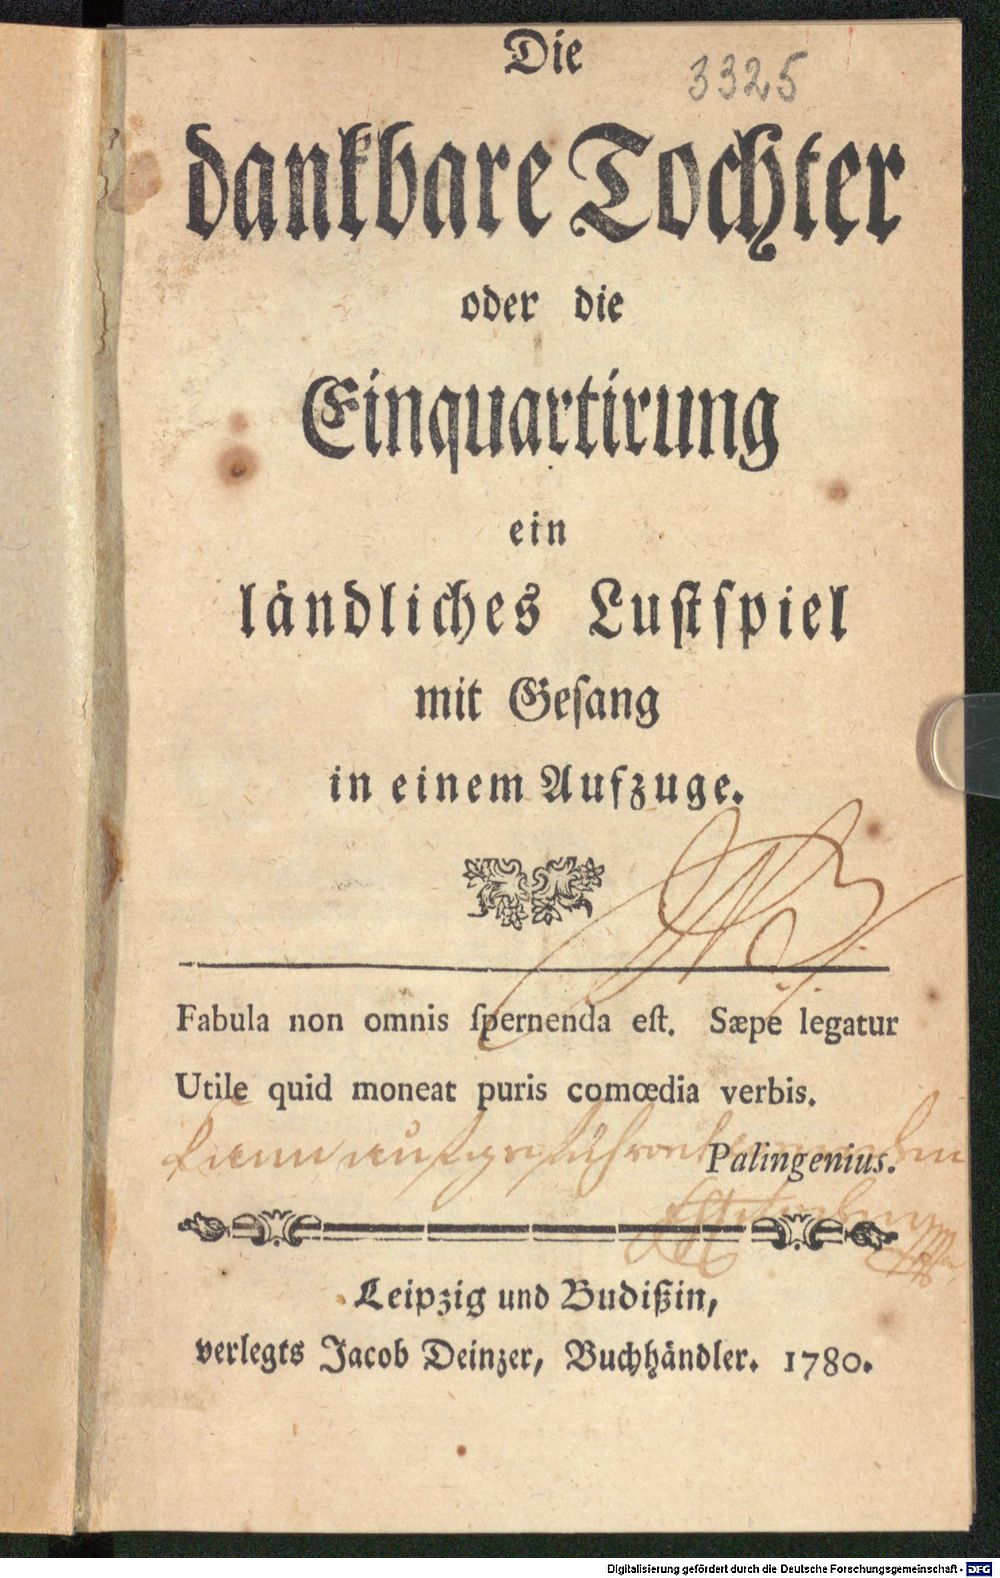 Die
3325
dankbare Tochter
oder die
Einquartirung
ein
ländliches Luſtſpiel
mit Geſang
in einem Aufzuge.
Fabula non omnis ſpernenda eſt. Sæpe legatur
Utile quid moneat puris comœdia verbis.
kann
Palingenius.
Leipzig und Budißin,
verlegts Jacob Deinzer, Buchhändler. 1780.
Digitalisierung gefördert durch die Deutsche Forschungsgemeinschaft - DFG